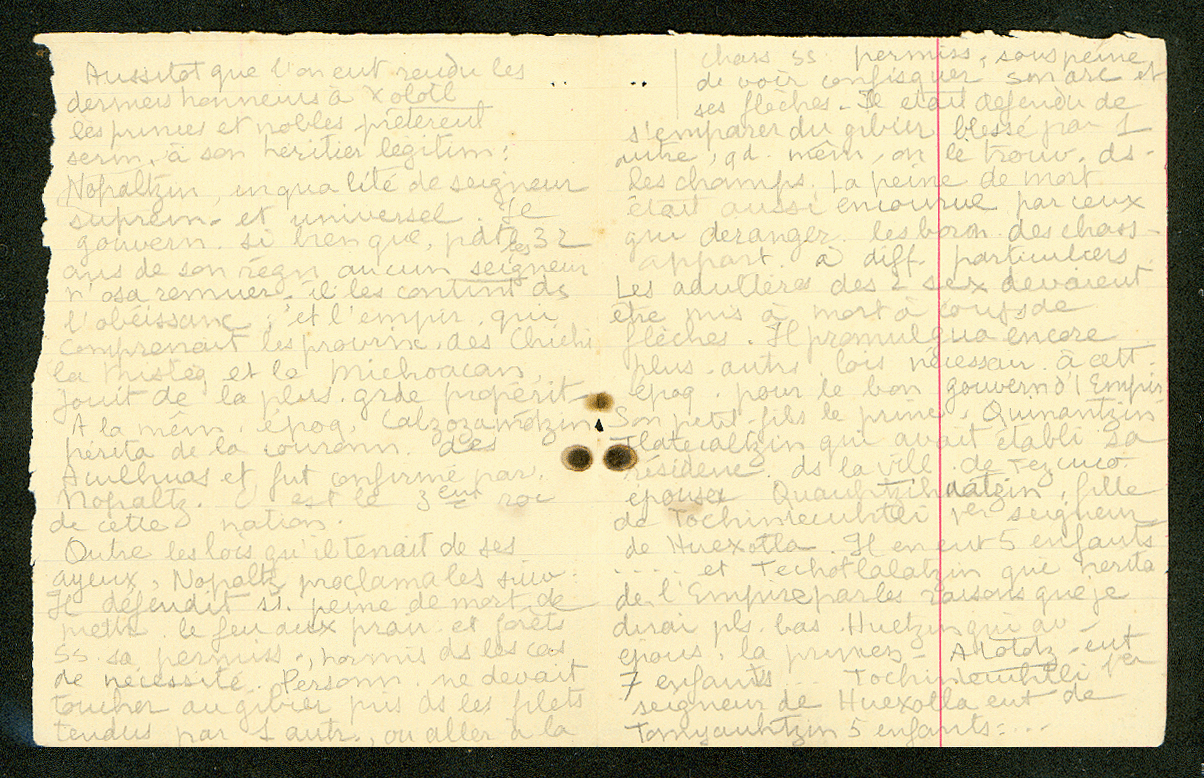 Aussitot que l'on eut rendu les
derniers honneurs à Xolotl
les princes et nobles prêtèrent
serm. à son héritier légitim.
Nopaltzin, en qualité de seigneur
suprêm. et universel. Il
gouvern. si bien que, pdt les 32
ans de son règn. aucun seigneur
n'osa remuer. il les contint ds
l'obéissanc. ; et l'empir. qui
comprenait les provinc. des Chichi
la Misteq et le Michoacan,
jouit de la plus grde propérit.
A la mêm. époq. Calzozamotzin
hérita de la couronn. des
Aculhuas et fut confirmé par.
Nopaltz. C'est le 3eme roi
de cette nation.
Outre les lois qu'il tenait de ses
ayeux, Nopaltz proclama les suiv.
Il défendit ss. peine de mort de
mettr. le feu aux prair. et forêts
ss. sa permiss., hormis ds les cas
de nécessité. Personn. ne devait
toucher au gibier pris ds les filets
tendus par 1 autr., ou aller à la
chass ss permiss., sous peine
de voir confisquer son arc et
ses flèches. Il était défendu de
s'emparer du gibier blessé par 1
autre, qd. mêm. on le trouv. ds.
les champs. La peine de mort
était aussi encourue par ceux
qui déranger. les born. des chass.
appart. à diff. particuliers.
Les adultères des 2 sex devaient
être mis à mort à coups de
flèches. Il promulgua encore
plus. autr. lois nécessair. à cett.
époq. pour le bon gouvern d l'Empir
Son petit-fils le princ. Quinantzin
Tlatecaltzin qui avait établi sa
résidenc. ds la vill. de Tezcuco.
épousa Quauhtzihuatzin, fille
de Tochinteuhtli 1er seigneur
de Huexotla. Il en eut 5 enfants
..... et Techotlalatzin qui hérita
de l'Empire par les raisons que je
dirai pls. bas. Huetzin qui av.
épous. la princess. Atototz eut
7 enfants ... Tochinteuhtli 1er
seigneur de Huexotla eut de
Tomyauhtzin 5 enfants: ...